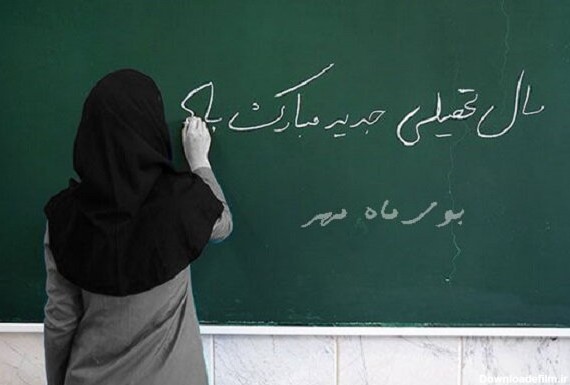 سال تحصیلی جدید مبارک باد
بوی ماه مهر
Downloadefilm.ir